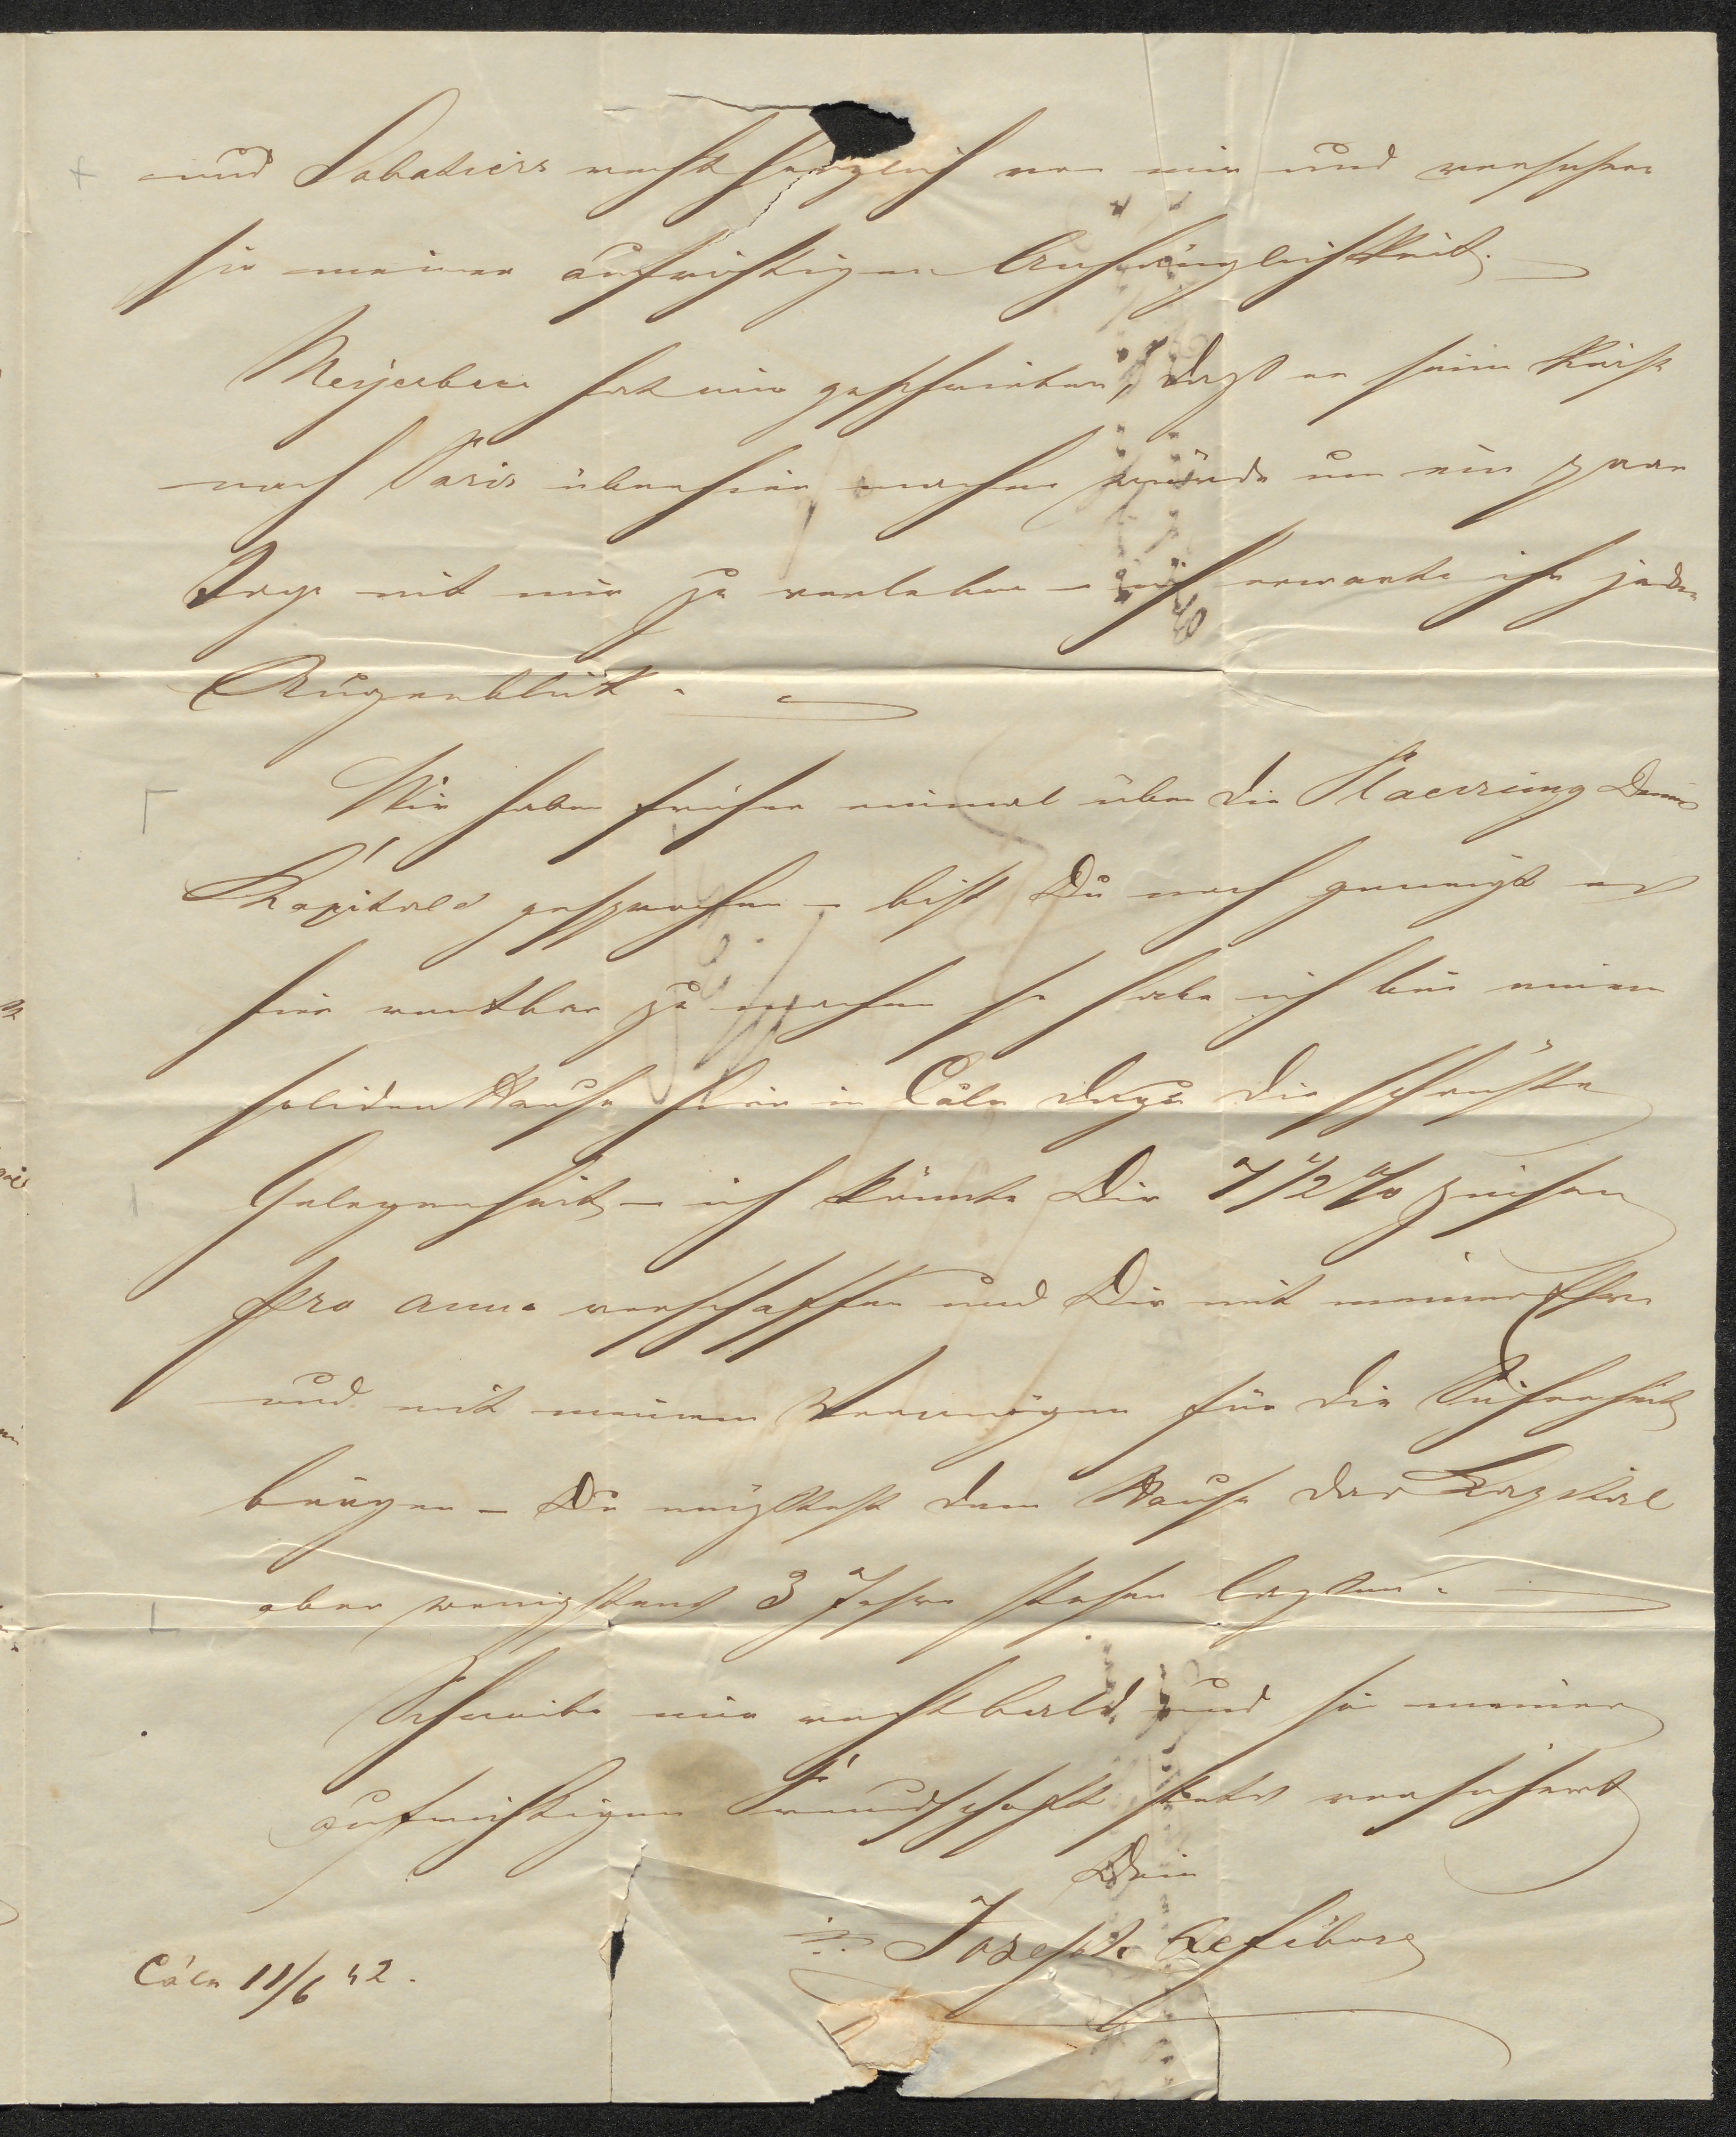 und Sabatiers recht herzlich von mir und versichere
sie meiner aufrichtigen Anhänglichkeit. —
Meyerbeer hat mir geschrieben, daß er seine Reise
nach Paris über hier machen würde um ein paar
Tage mit mir zu verleben – ich erwarte ihn jeden
Augenblick. —
Wir haben früher einmal über die Placirung Deines
Kapitals gesprochen – bist Du noch geneigt es
hier rentbar zu machen so habe ich bei einem
soliden Hause hier in Cöln dazu die schönste
Gelegenheit – ich könnte Dir 7 1/2 % Zinsen
pro anno verschaffen und Dir mit meiner Ehre
und mit meinem Vermögen für die Sicherheit
bürgen – Du müßtest dem Hause das Kapital
aber wenigstens 3 Jahre stehen laßen. —
Schreibe mir recht bald und sei meiner
aufrichtigen Freundschaft stets versichert
Dein
Joseph
Cöln 11/6 42.